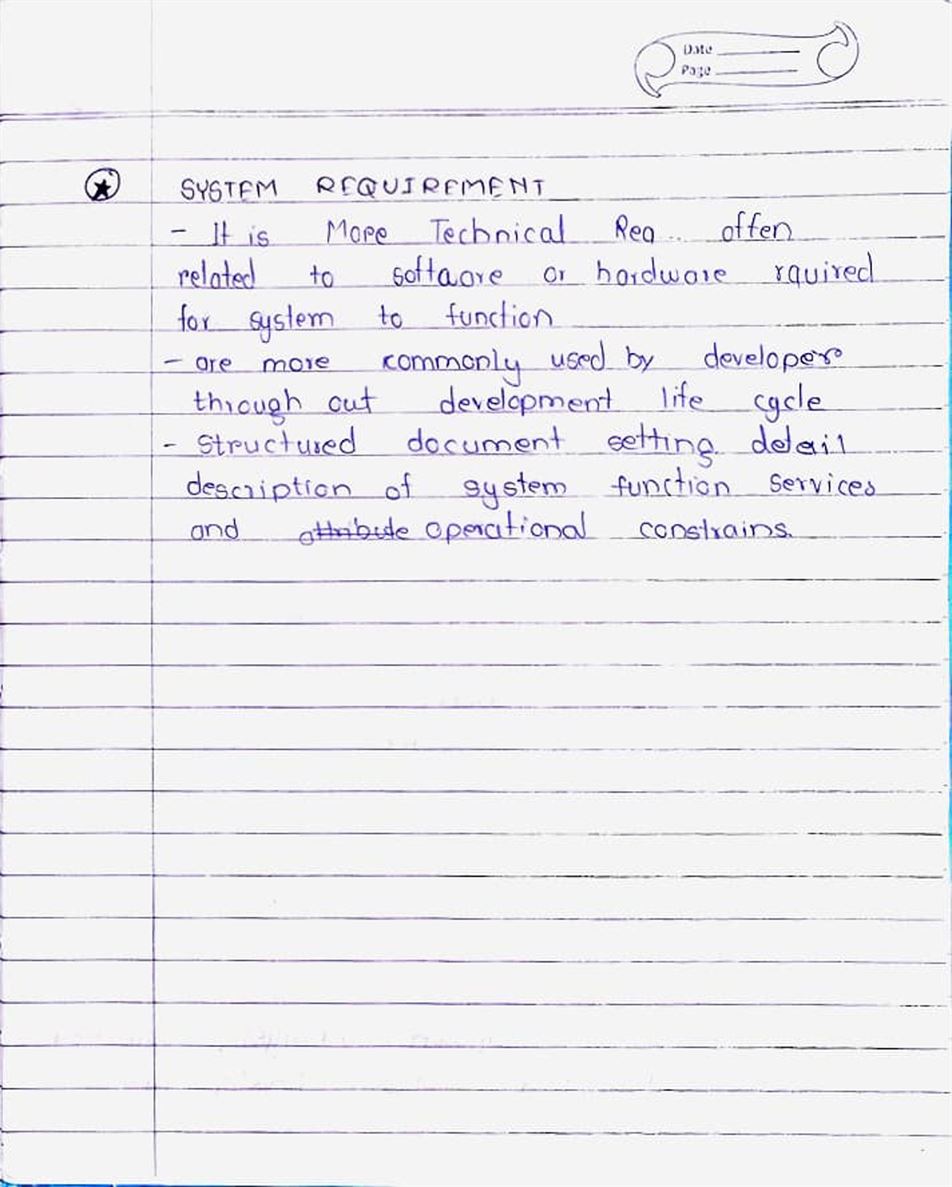 Date
Page
SYSTEM REQUIREMENT
- It is More Technical Req.. often
related to softaore or hardware rquired
for system to function
- are more commonly used by developers
through out development life cycle
- Structured document setting detail
description of system function services
and attribute operational constrains.